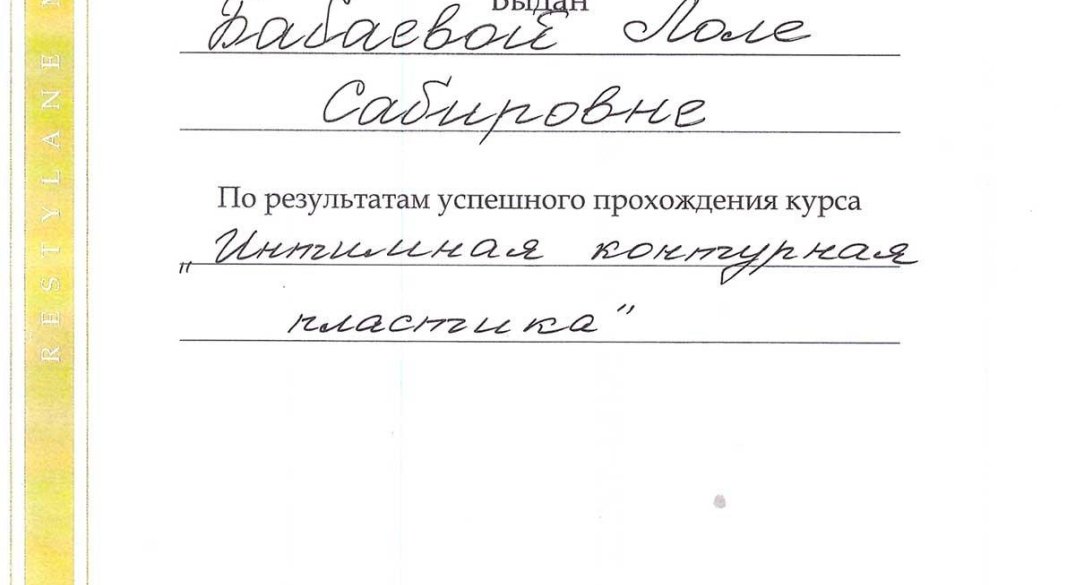 Выдан
Бабаевой Лоле
Сабировне
По результатам успешного прохождения курса
„Интимная контурная
пластика"
RESTYLANE